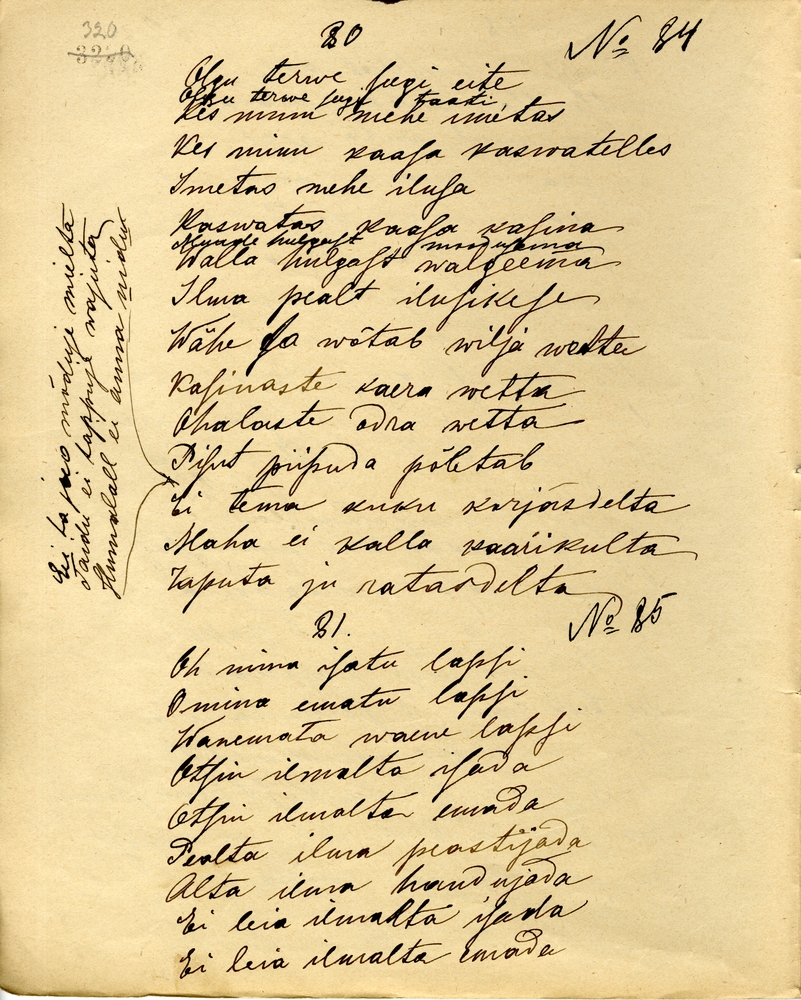 320
80
No 84
Olgu terwe siegi eite
Olgu terwe siegi taati
Kes minu mehe imetas
Kes minu kaasa kaswatelles
Imetas mehe ilusa
Kaswatas kaasa kasina
Muude hulgast moodujama
Walla hulgast walgeema
Ilma pealt ilusikese
Wähe ta wõtab wilja wetta
Kasinaste kaera wetta
Ohalaste odra wetta
Pisut piipuda põletab
Ei tema kuku korjasdelta
Maha ei kalla kaarikulta
Zaputa ju ratasdelta
Ei ta joo mõduje mielta
Taidu ei tappuje wajuta
Humalall ei anna midu
81.
No 85
Oh mina isatu lapsi
O mina ematu lapsi
Wanemata waene lapsi
Otsin ilmalta isada
Otsin ilmalta emada
Pealta ilma peastijada
Alta ilma handujada
Ei leia ilmalta isada
Ei leia ilmalta emada